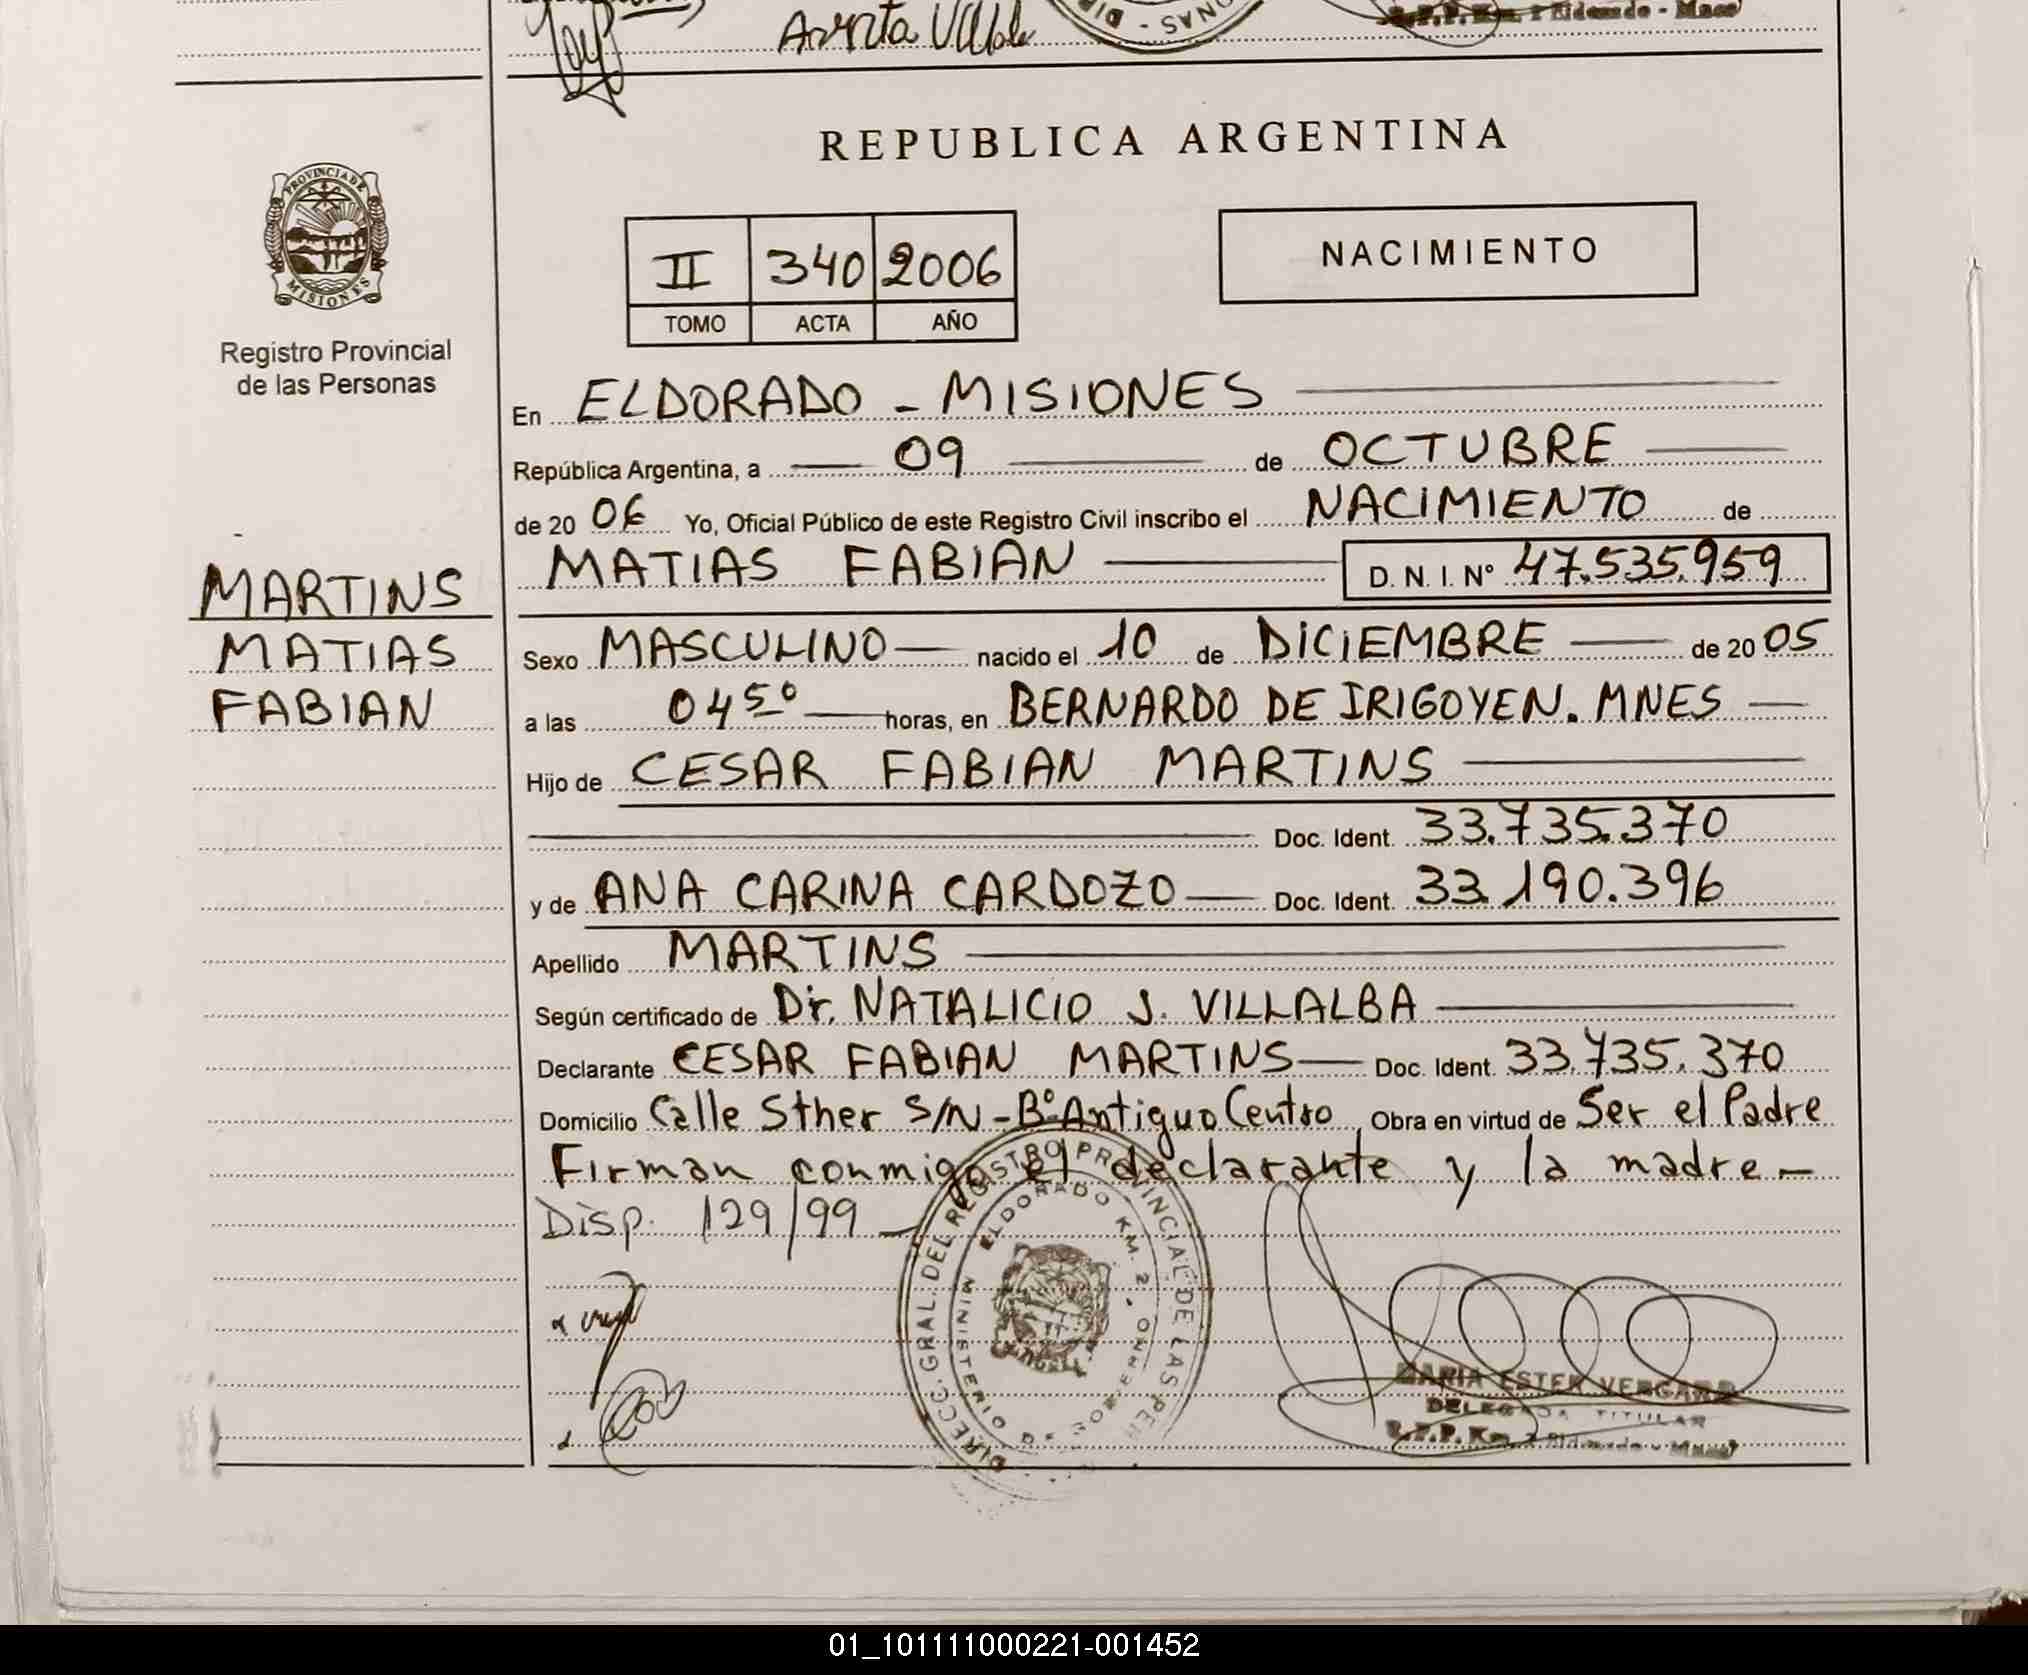 Avrita Villalba
REPUBLICA ARGENTINA
PROVINCIA DE
MISIONES
Registro Provincial
de las Personas
II 340 2006
TOMO ACTA AÑO
NACIMIENTO
En ELDORADO - MISIONES
República Argentina, a 09 de OCTUBRE
de 20 06 Yo, Oficial Público de este Registro Civil inscribo el NACIMIENTO de
MARTINS
MATIAS
FABIAN
MATIAS FABIAN D. N. I. Nº 47.535.959
Sexo MASCULINO nacido el 10 de DICIEMBRE de 20 05
a las 04 50 horas, en BERNARDO DE IRIGOYEN. MNES
Hijo de CESAR FABIAN MARTINS
Doc. Ident. 33.735.370
y de ANA CARINA CARDOZO Doc. Ident. 33.190.396
Apellido MARTINS
Según certificado de Dr. NATALICIO J. VILLALBA
Declarante CESAR FABIAN MARTINS Doc. Ident. 33.735.370
Domicilio Calle Sther S/N - Bº Antiguo Centro Obra en virtud de Ser el Padre
Firman conmigo el declarante y la madre.-
Disp. 129/99
DIRECC. GRAL. DEL REGISTRO PROVINCIAL DE LAS PER
MINISTERIO DE GOBIERNO
ELDORADO KM. 2
MARIA ESTER VERGARA
DELEGADA TITULAR
R.P.P. Km. 2 Eldorado - Mnes
01_101111000221-001452